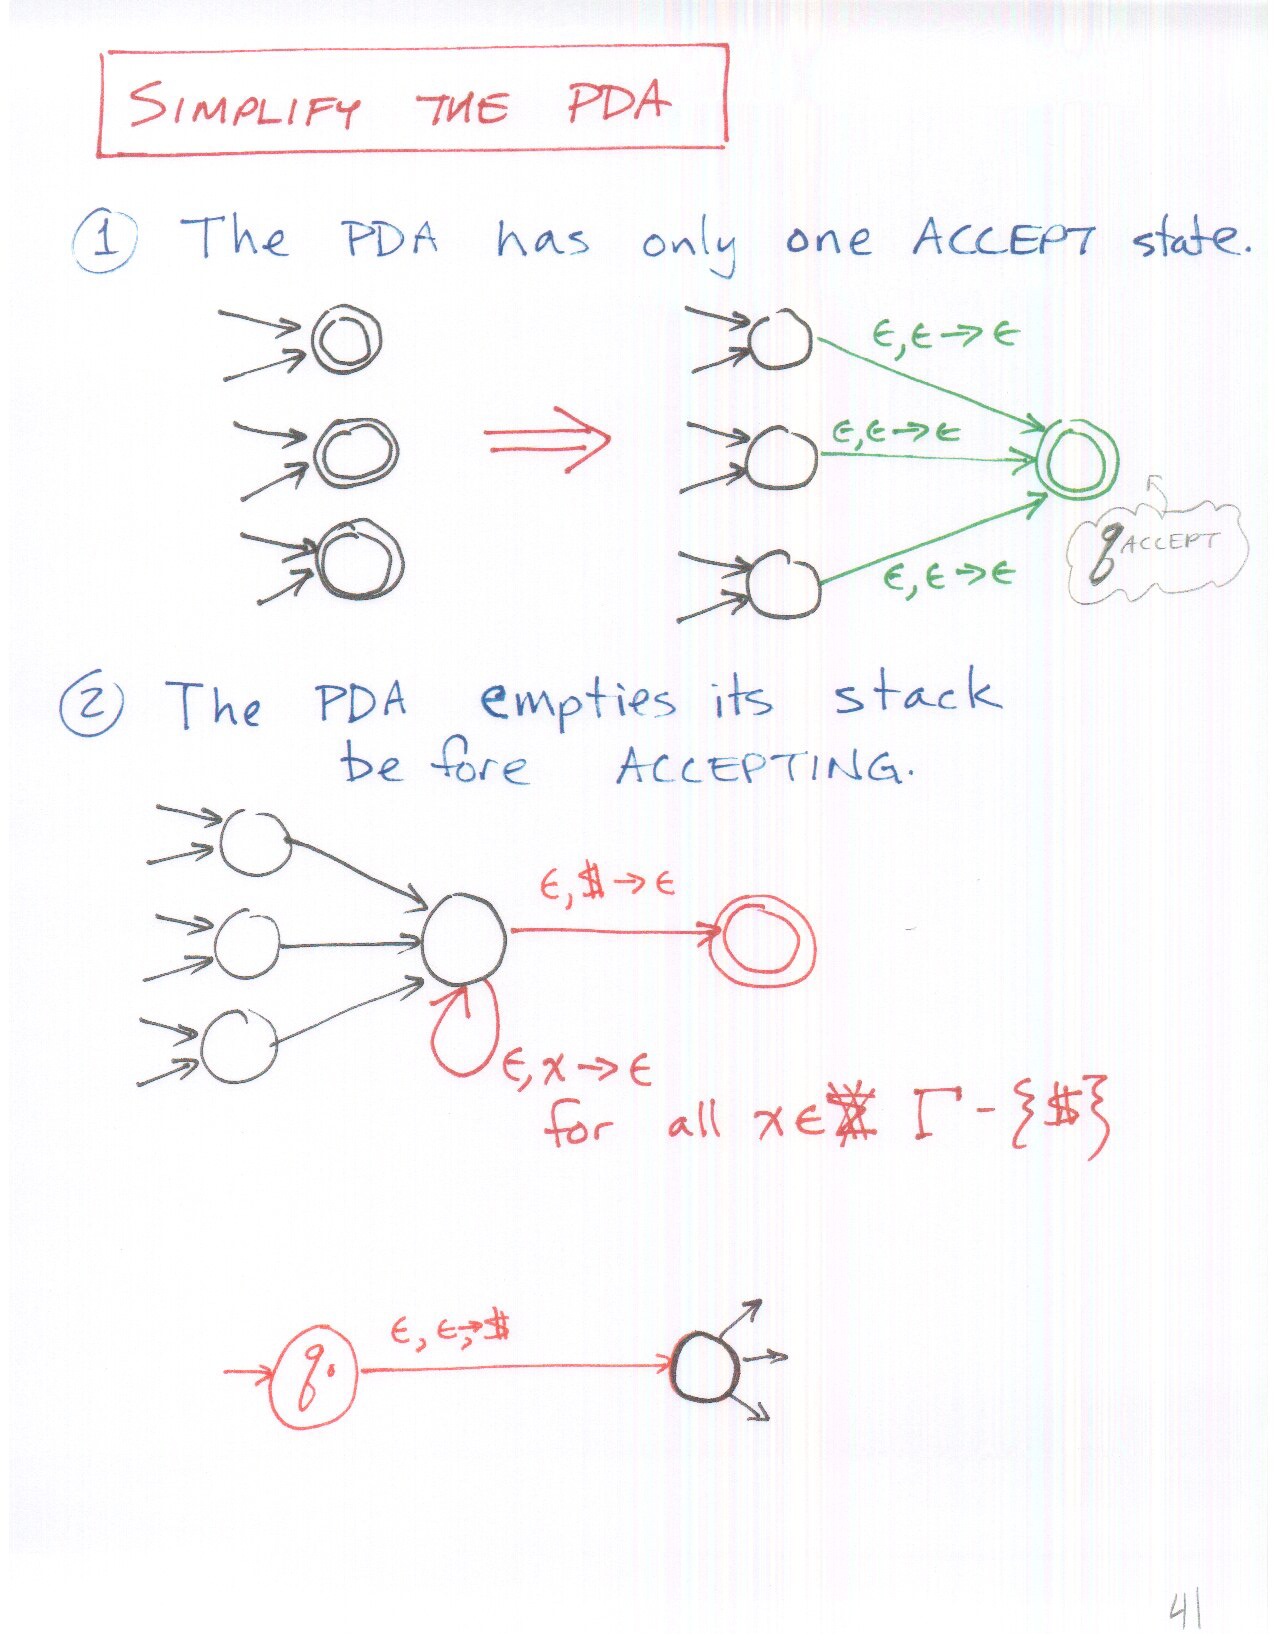 SIMPLIFY THE PDA
① The PDA has only one ACCEPT state.
ϵ, ϵ → ϵ
ϵ, ϵ → ϵ
ϵ, ϵ → ϵ
q ACCEPT
② The PDA empties its stack
before ACCEPTING.
ϵ, $ → ϵ
ϵ, x → ϵ
for all x ∈ Γ - {$}
q₀
ϵ, ϵ → $
41